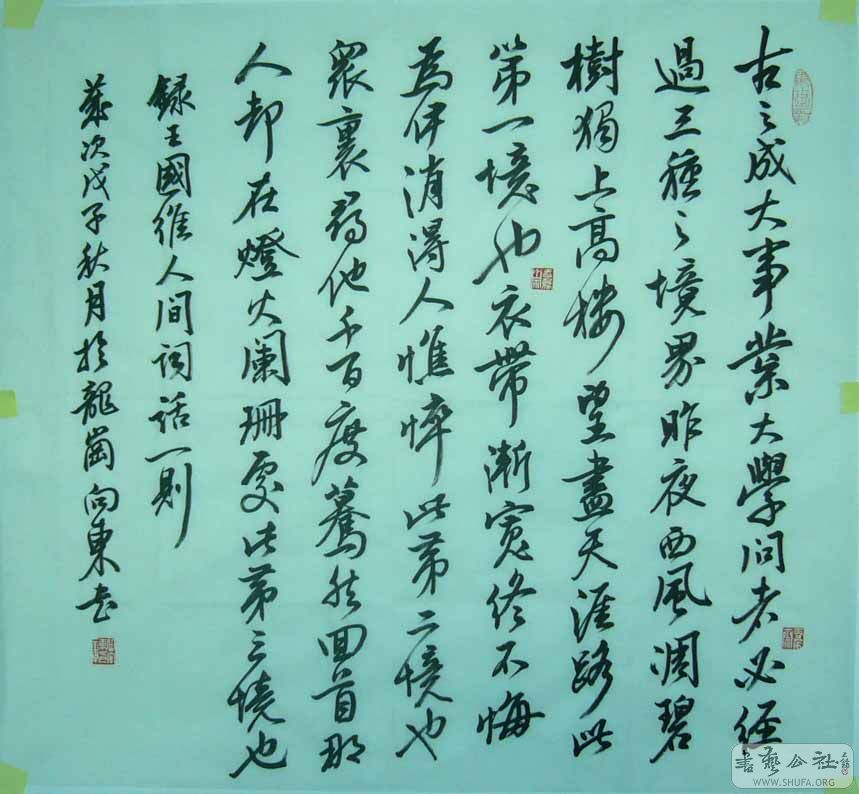 古之成大事業大學問者必經
過三種之境界昨夜西風凋碧
樹獨上高樓望盡天涯路此
第一境也衣帶漸寬終不悔
為伊消得人憔悴此第二境也
眾裏尋他千百度驀然回首那
人却在燈火闌珊處此第三境也
録王國維人间詞話一則
歲次戊子秋月於龍崗向東書
書藝公社
WWW.SHUFA.ORG